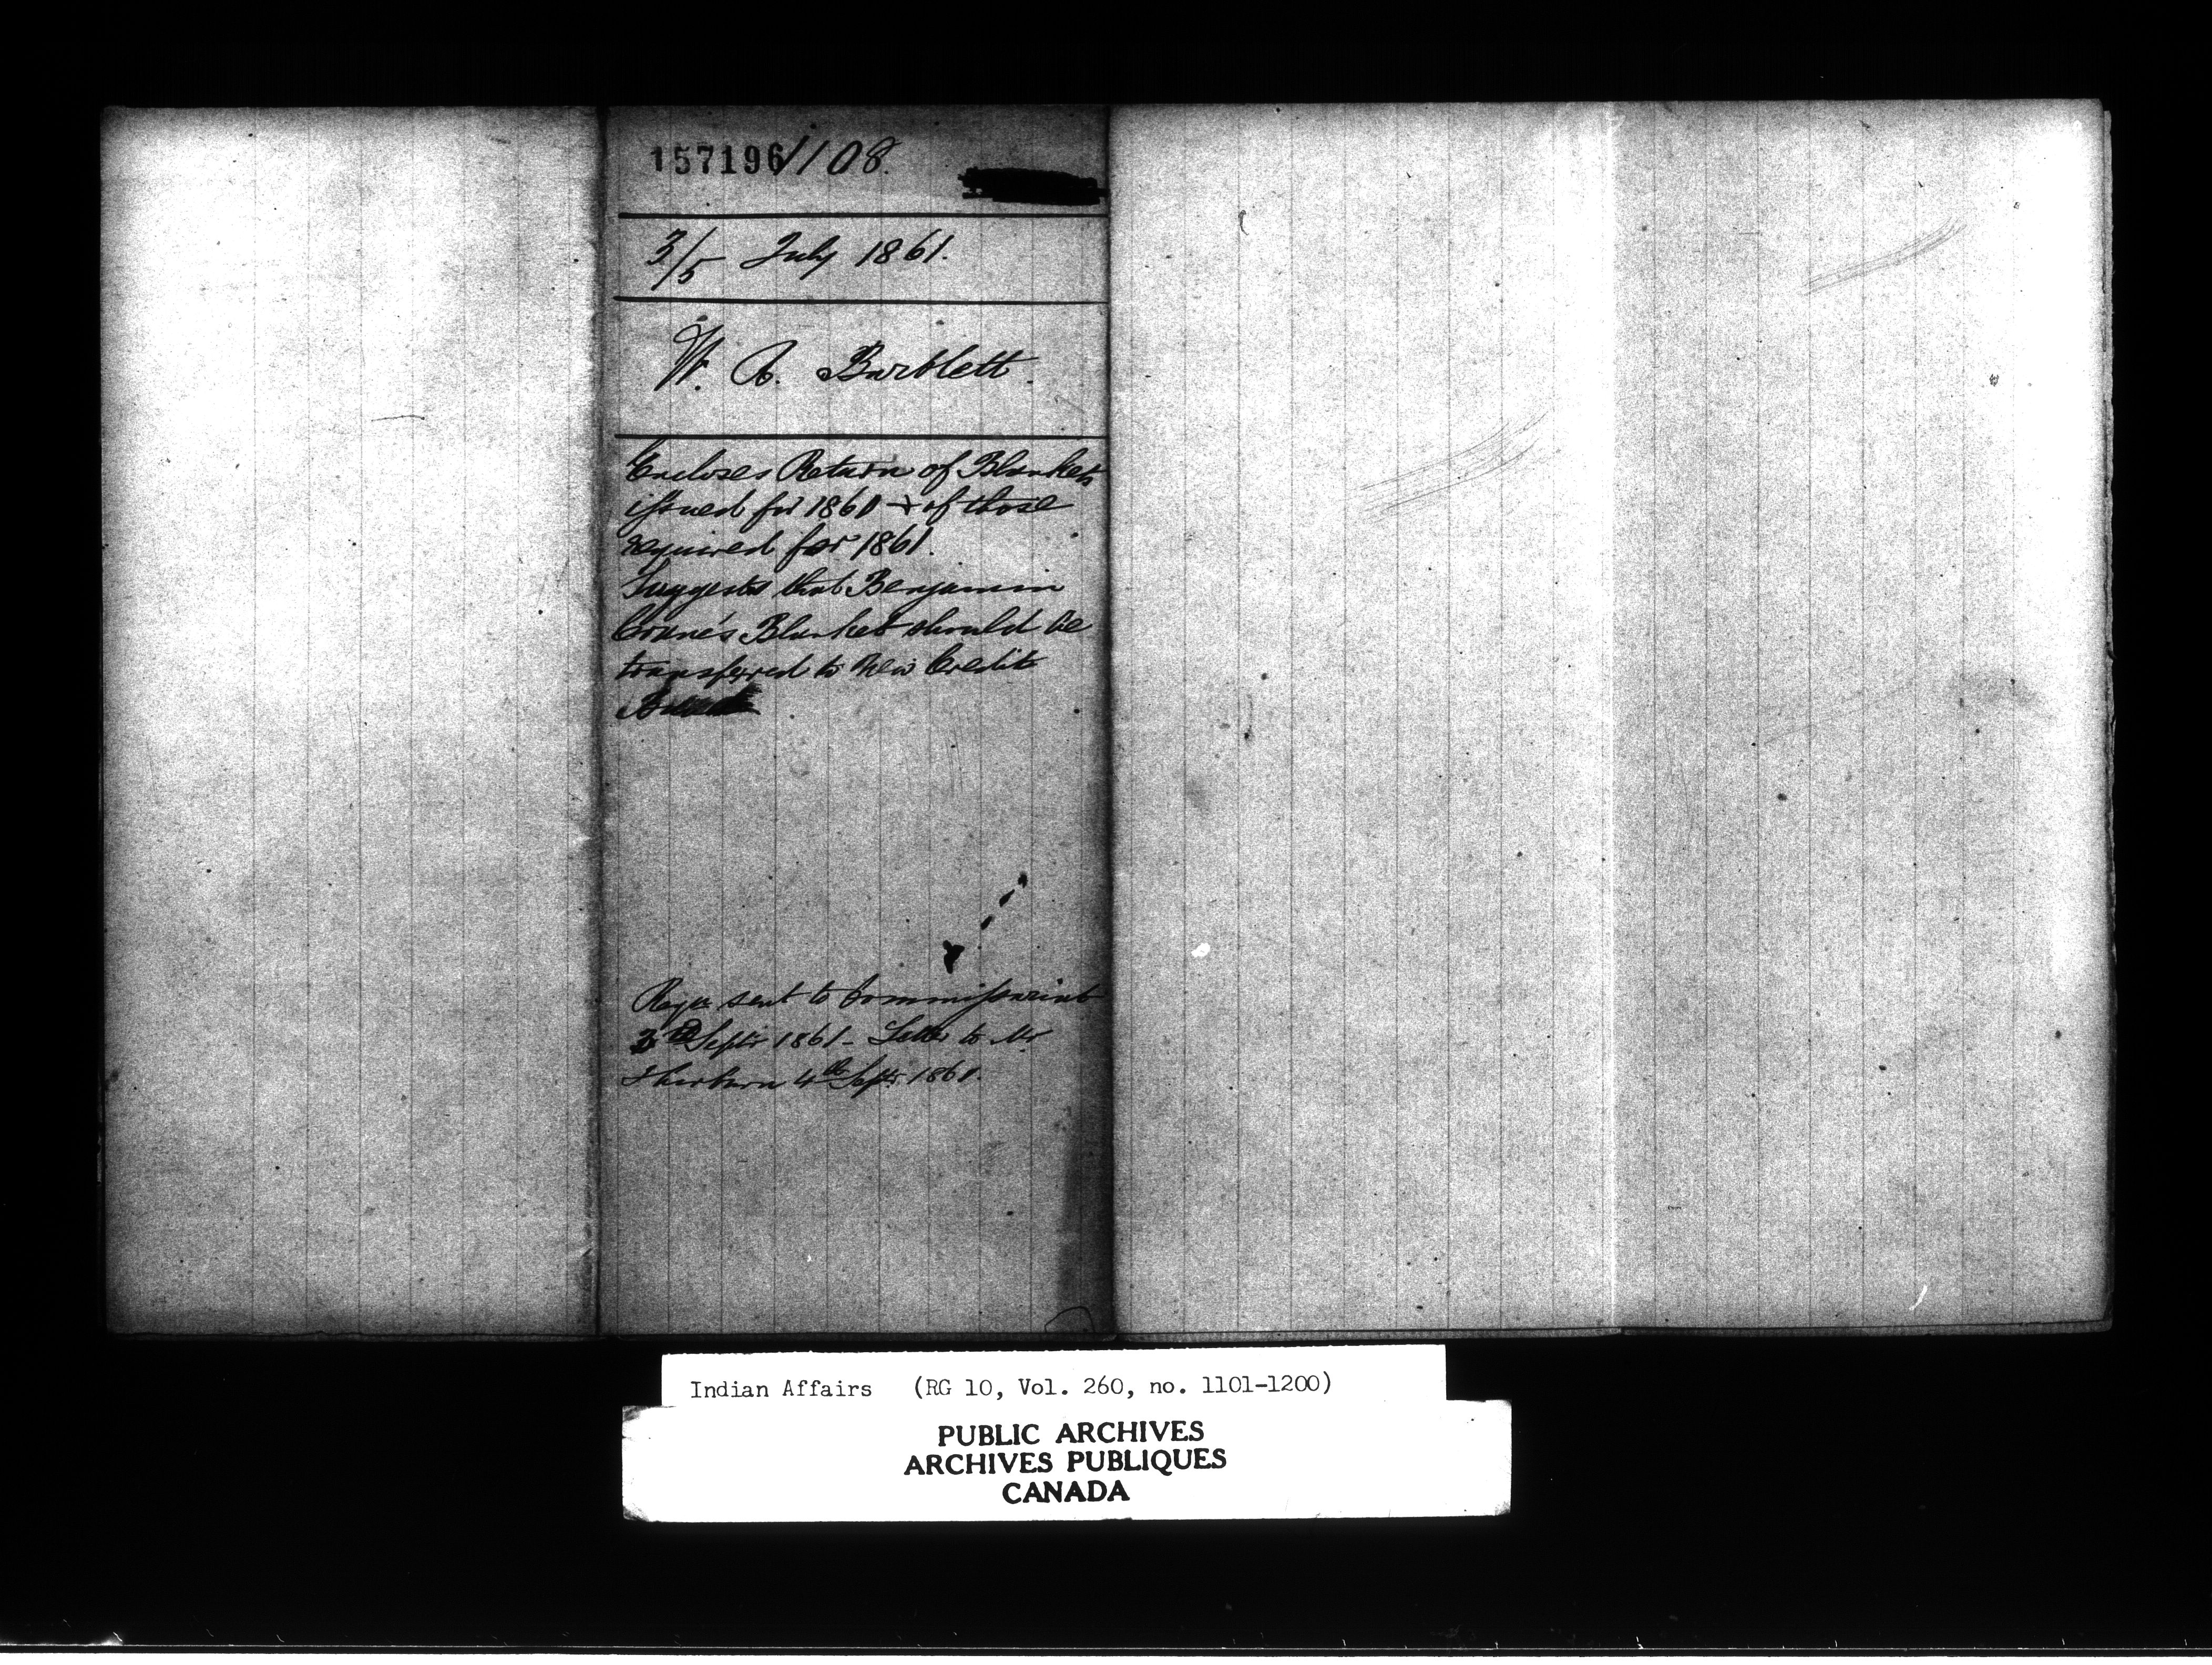 157196 1108.
3/5 July 1861.
W. R. Bartlett.
Encloses Return of Blankets
issued for 1860 & of those
required for 1861.
Suggests that Benjamin
Crane's Blanket should be
transferred to New Credit
Reqn sent to Commissariat
3rd Septr 1861 - Letter to Mr
Thorburn 4th Septr 1861.
Indian Affairs (RG 10, Vol. 260, no. 1101-1200)
PUBLIC ARCHIVES
ARCHIVES PUBLIQUES
CANADA